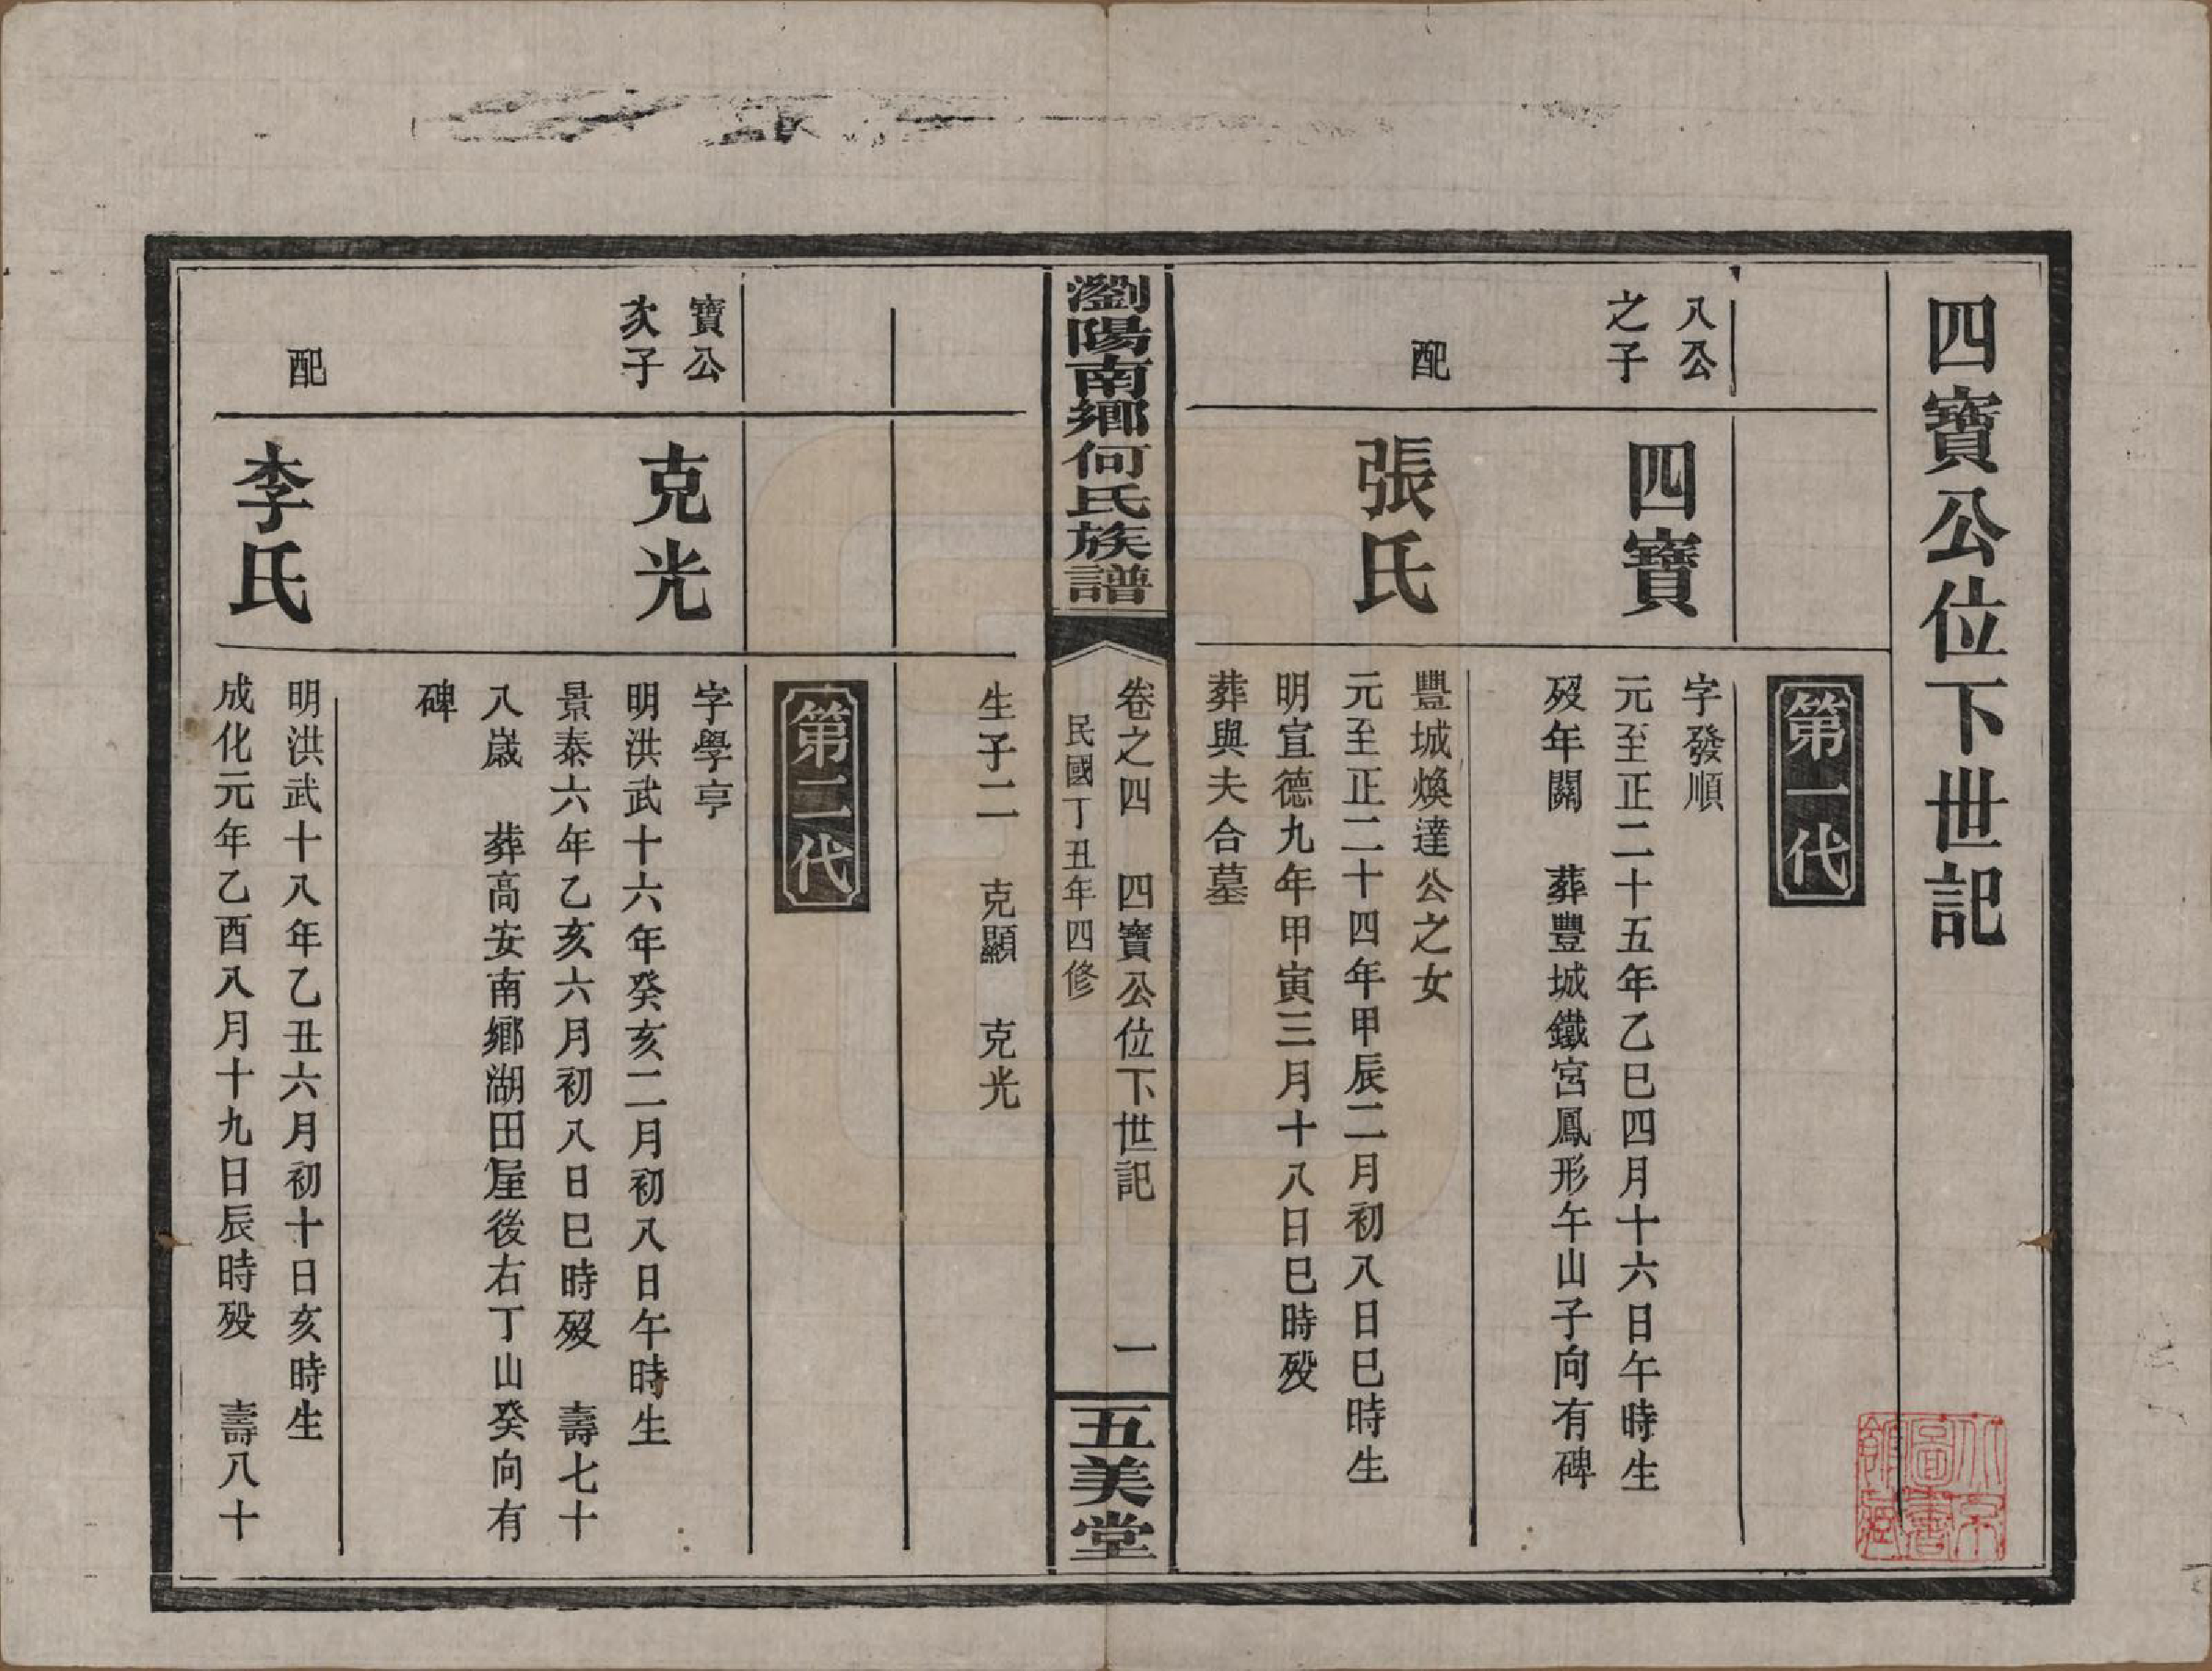 四寶公位下世記
第一代
八公
之子
四寶
字發順
元至正二十五年乙巳四月十六日午時生
歿年闕 葬豐城鐵宮鳳形午山子向有碑
配
張氏
豐城煥達公之女
元至正二十四年甲辰二月初八日巳時生
明宣德九年甲寅三月十八日巳時歿
葬與夫合墓
瀏陽南鄉何氏族譜
卷之四 四寶公位下世記 一
民國丁丑年四修
五美堂
生子二 克顯 克光
第二代
寶公
次子
克光
字學亨
明洪武十六年癸亥二月初八日午時生
景泰六年乙亥六月初八日巳時歿 壽七十
八歲 葬高安南鄉湖田屋後右丁山癸向有
碑
配
李氏
明洪武十八年乙丑六月初十日亥時生
成化元年乙酉八月十九日辰時歿 壽八十